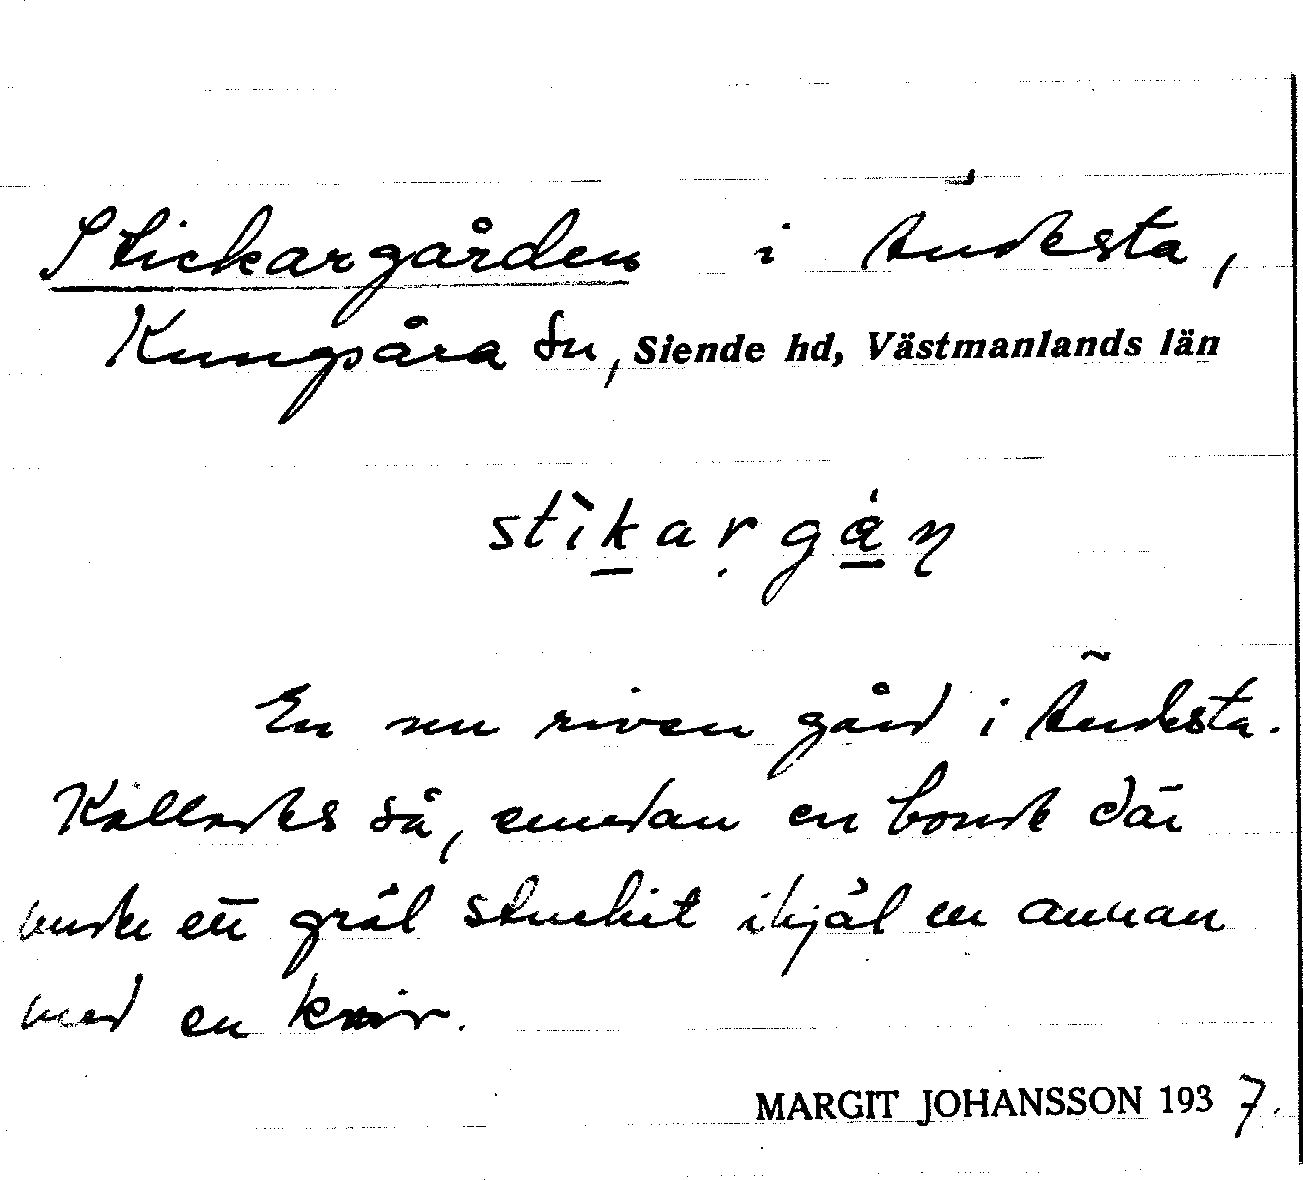 Stickargården i Ändesta,
Kungsåra sn, Siende hd, Västmanlands län
stìkargán
En nu riven gård i Ändesta.
Kallades så, emedan en bonde där
under ett gräl stuckit ihjäl en annan
med en kniv.
MARGIT JOHANSSON 1937.